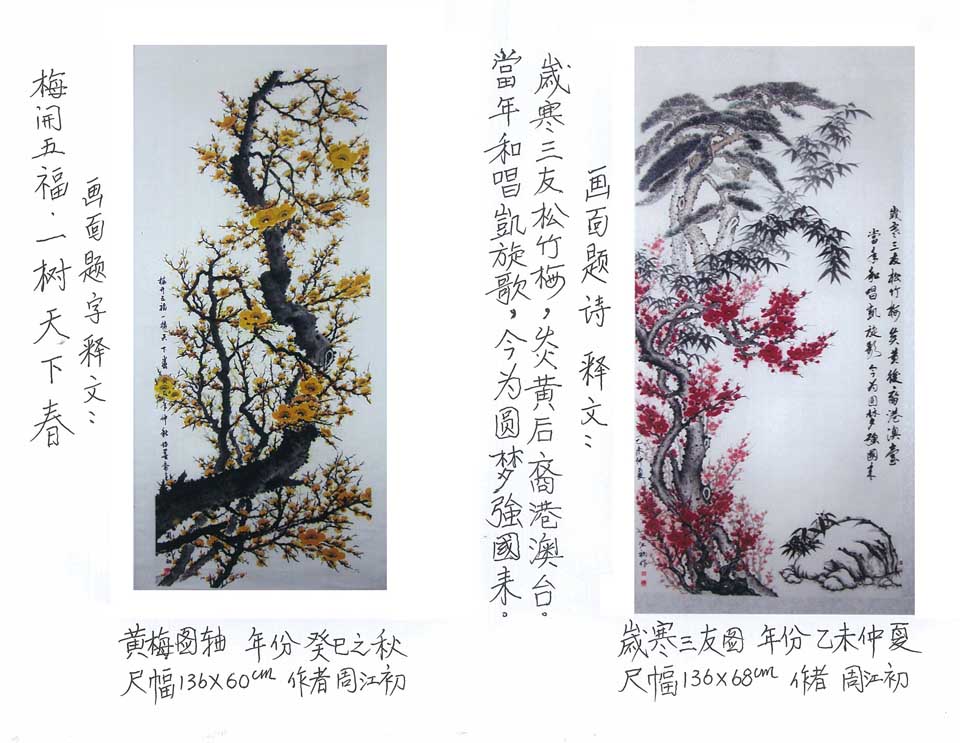 画面题字释文：
梅开五福·一树天下春
黄梅图轴 年份 癸巳之秋
尺幅136×60cm 作者 周江初
画面题诗 释文：
歲寒三友松竹梅，炎黄后裔港澳台。
當年和唱凱旋歌，今为圆梦強國来。
歲寒三友松竹梅 炎黄後裔港澳臺
當年和唱凱旋歌 今为圆梦強國来
歲寒三友图 年份 乙未仲夏
尺幅136×68cm 作者 周江初